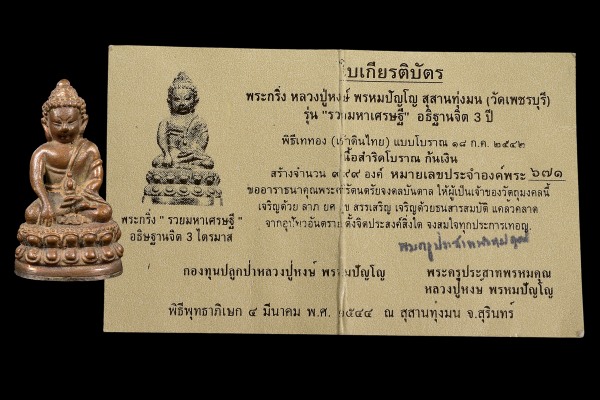 ใบเกียรติบัตร
พระกริ่ง หลวงปู่หงษ์ พรหมปัญโญ สุสานทุ่งมน (วัดเพชรบุรี)
รุ่น "รวยมหาเศรษฐี" อธิฐานจิต 3 ปี
พิธีเททอง (เตาดินไทย) แบบโบราณ ๑๘ ก.ค. ๒๕๔๒
เนื้อสำริดโบราณ ก้นเงิน
สร้างจำนวน ๙๙๙ องค์ หมายเลขประจำองค์พระ ๖๗๑
ขออาราธนาคุณพระศรีรัตนตรัยจงดลบันดาล ให้ผู้เป็นเจ้าของวัตถุมงคลนี้
เจริญด้วย ลาภ ยศ สุข สรรเสริญ เจริญด้วยธนสารสมบัติ แคล้วคลาด
จากอุปัทวอันตราย ตั้งจิตประสงค์สิ่งใด จงสมใจทุกประการเทอญ.
พระกริ่ง " รวยมหาเศรษฐี "
อธิษฐานจิต 3 ไตรมาส
พระครูประสาทพรหมคุณ
กองทุนปลูกป่าหลวงปู่หงษ์ พรหมปัญโญ
พระครูประสาทพรหมคุณ
หลวงปู่หงษ์ พรหมปัญโญ
พิธีพุทธาภิเษก ๔ มีนาคม พ.ศ. ๒๕๔๔ ณ สุสานทุ่งมน จ.สุรินทร์